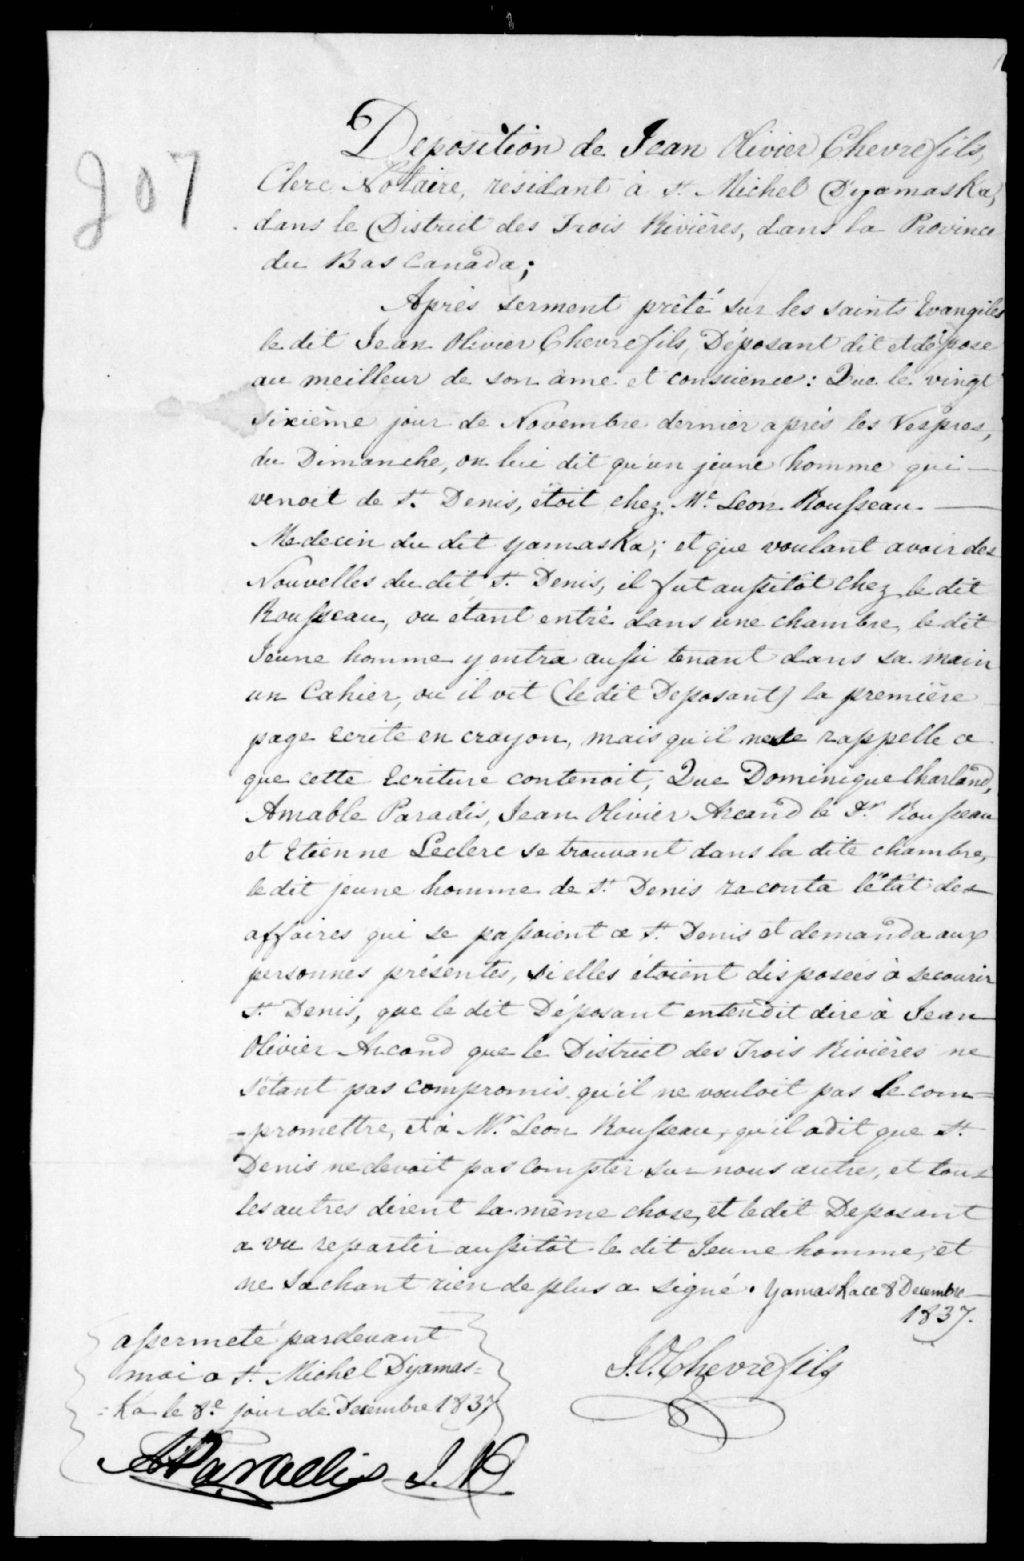 207
Deposition de Jean Olivier Chevrefils,
Clerc Notaire, résidant à St. Michel D'yamaska,
dans le District des Trois Rivières, dans la Province
du Bas Canada;
Après serment prêté sur les saints Evangiles
le dit Jean Olivier Chevrefils, Déposant dit et dépose
au meilleur de son ame et conscience: Que le vingt
sixième jour de Novembre dernier après les Vespres,
du Dimanche, on lui dit qu'un jeune homme qui —
venoit de St. Denis, étoit chez Mr. Leon Rousseau —
Medecin du dit yamaska; et que voulant avoir des
Nouvelles du dit St. Denis, il fut aussitôt chez le dit
Rousseau, ou étant entré dans une chambre, le dit
Jeune homme y entra aussi tenant dans sa main
un Cahier, ou il vit (le dit Deposant) la première
page Ecrite en crayon, mais qu'il ne se rappelle ce
que cette Ecriture contenoit, Que Dominique Charland,
Amable Paradis, Jean Olivier Arcand le Dr. Rousseau
et Etienne Leclerc se trouvant dans la dite chambre,
le dit jeune homme de St. Denis raconta l'état des
affaires qui se passoient a St. Denis et demanda aux
personnes présentes, si elles étoient disposées à secourir
St. Denis, que le dit Déposant entendit dire à Jean
Olivier Arcand que le District des Trois Rivières ne
s'étant pas compromis qu'il ne vouloit pas se com=
=promettre, et à Mr. Leon Rousseau, qu'il a dit que St.
Denis ne devoit pas compter sur nous autres, et tous
les autres dirent la même chose, et le dit Deposant
a vu repartir aussitôt le dit Jeune homme, et
ne sachant rien de plus a signé. Yamaska ce 8 Decembre
1837.
J.O. Chevrefils
assermeté pardevant
moi a St. Michel D'yamas=
=ka le 8e. jour de Decembre 1837
A Paradis J.P.